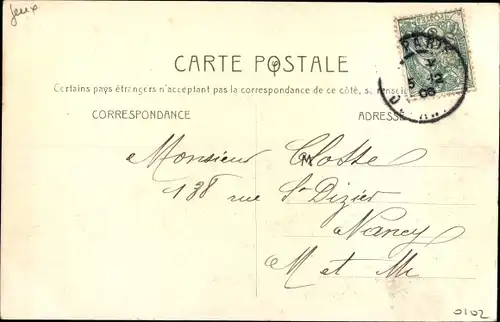 jeux
CARTE POSTALE
Certains pays étrangers n'acceptant pas la correspondance de ce côté, se renseigner
CORRESPONDANCE
ADRESSE
M
Monsieur Closse
138 rue St Dizier
à Nancy
M et M
PARIS
12
06
0102